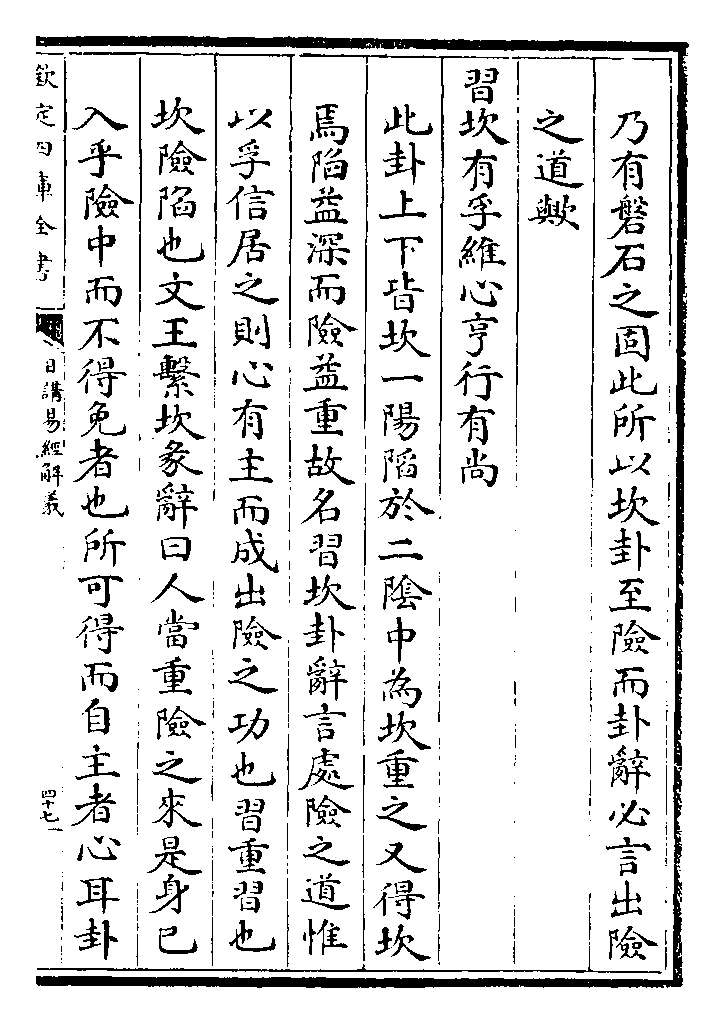 乃有磐石之固此所以坎卦至險而卦辭必言出險
之道歟
習坎有孚維心亨行有尚
此卦上下皆坎一陽陷於二陰中為坎重之又得坎
焉陷益深而險益重故名習坎卦辭言處險之道惟
以孚信居之則心有主而成出險之功也習重習也
坎險陷也文王繫坎彖辭曰人當重險之來是身已
入乎險中而不得免者也所可得而自主者心耳卦
欽定四庫全書
日講易經解義
四十七